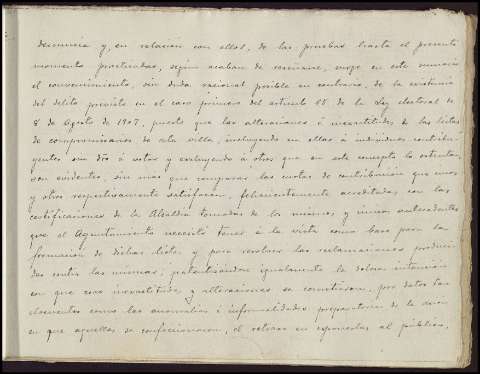 denuncia y, en relación con ellos, de las pruebas hasta el presente
momento practicadas, según acaban de examinarse, surge en este sumario
el convencimiento, sin duda racional posible en contrario, de la existencia
del delito previsto en el caso primero del artículo 65 de la Ley electoral de
8 de Agosto de 1907, puesto que las alteraciones é inexactitudes de las listas
de compromisarios de esta villa, incluyendo en ellas á individuos contribu-
yentes sin dro á votar y excluyendo á otros que en este concepto lo ostentan,
son evidentes, sin más que comparar las cuotas de contribución que unos
y otros respectivamente satisfacen, fehacientemente acreditadas con las
certificaciones de la Alcaldía tomadas de los mismos y únicos antecedentes
que el Ayuntamiento necesitó tener á la vista como base para la
formación de dichas listas y para resolver las reclamaciones produci-
das contra las mismas; patentizándose igualmente la dolosa intención
con que esas inexactitudes y alteraciones se cometieron, por datos tan
elocuentes como las anomalías é informalidades preparatorias de la
en que aquellas se confeccionaron, el retraso en exponerlas al público,